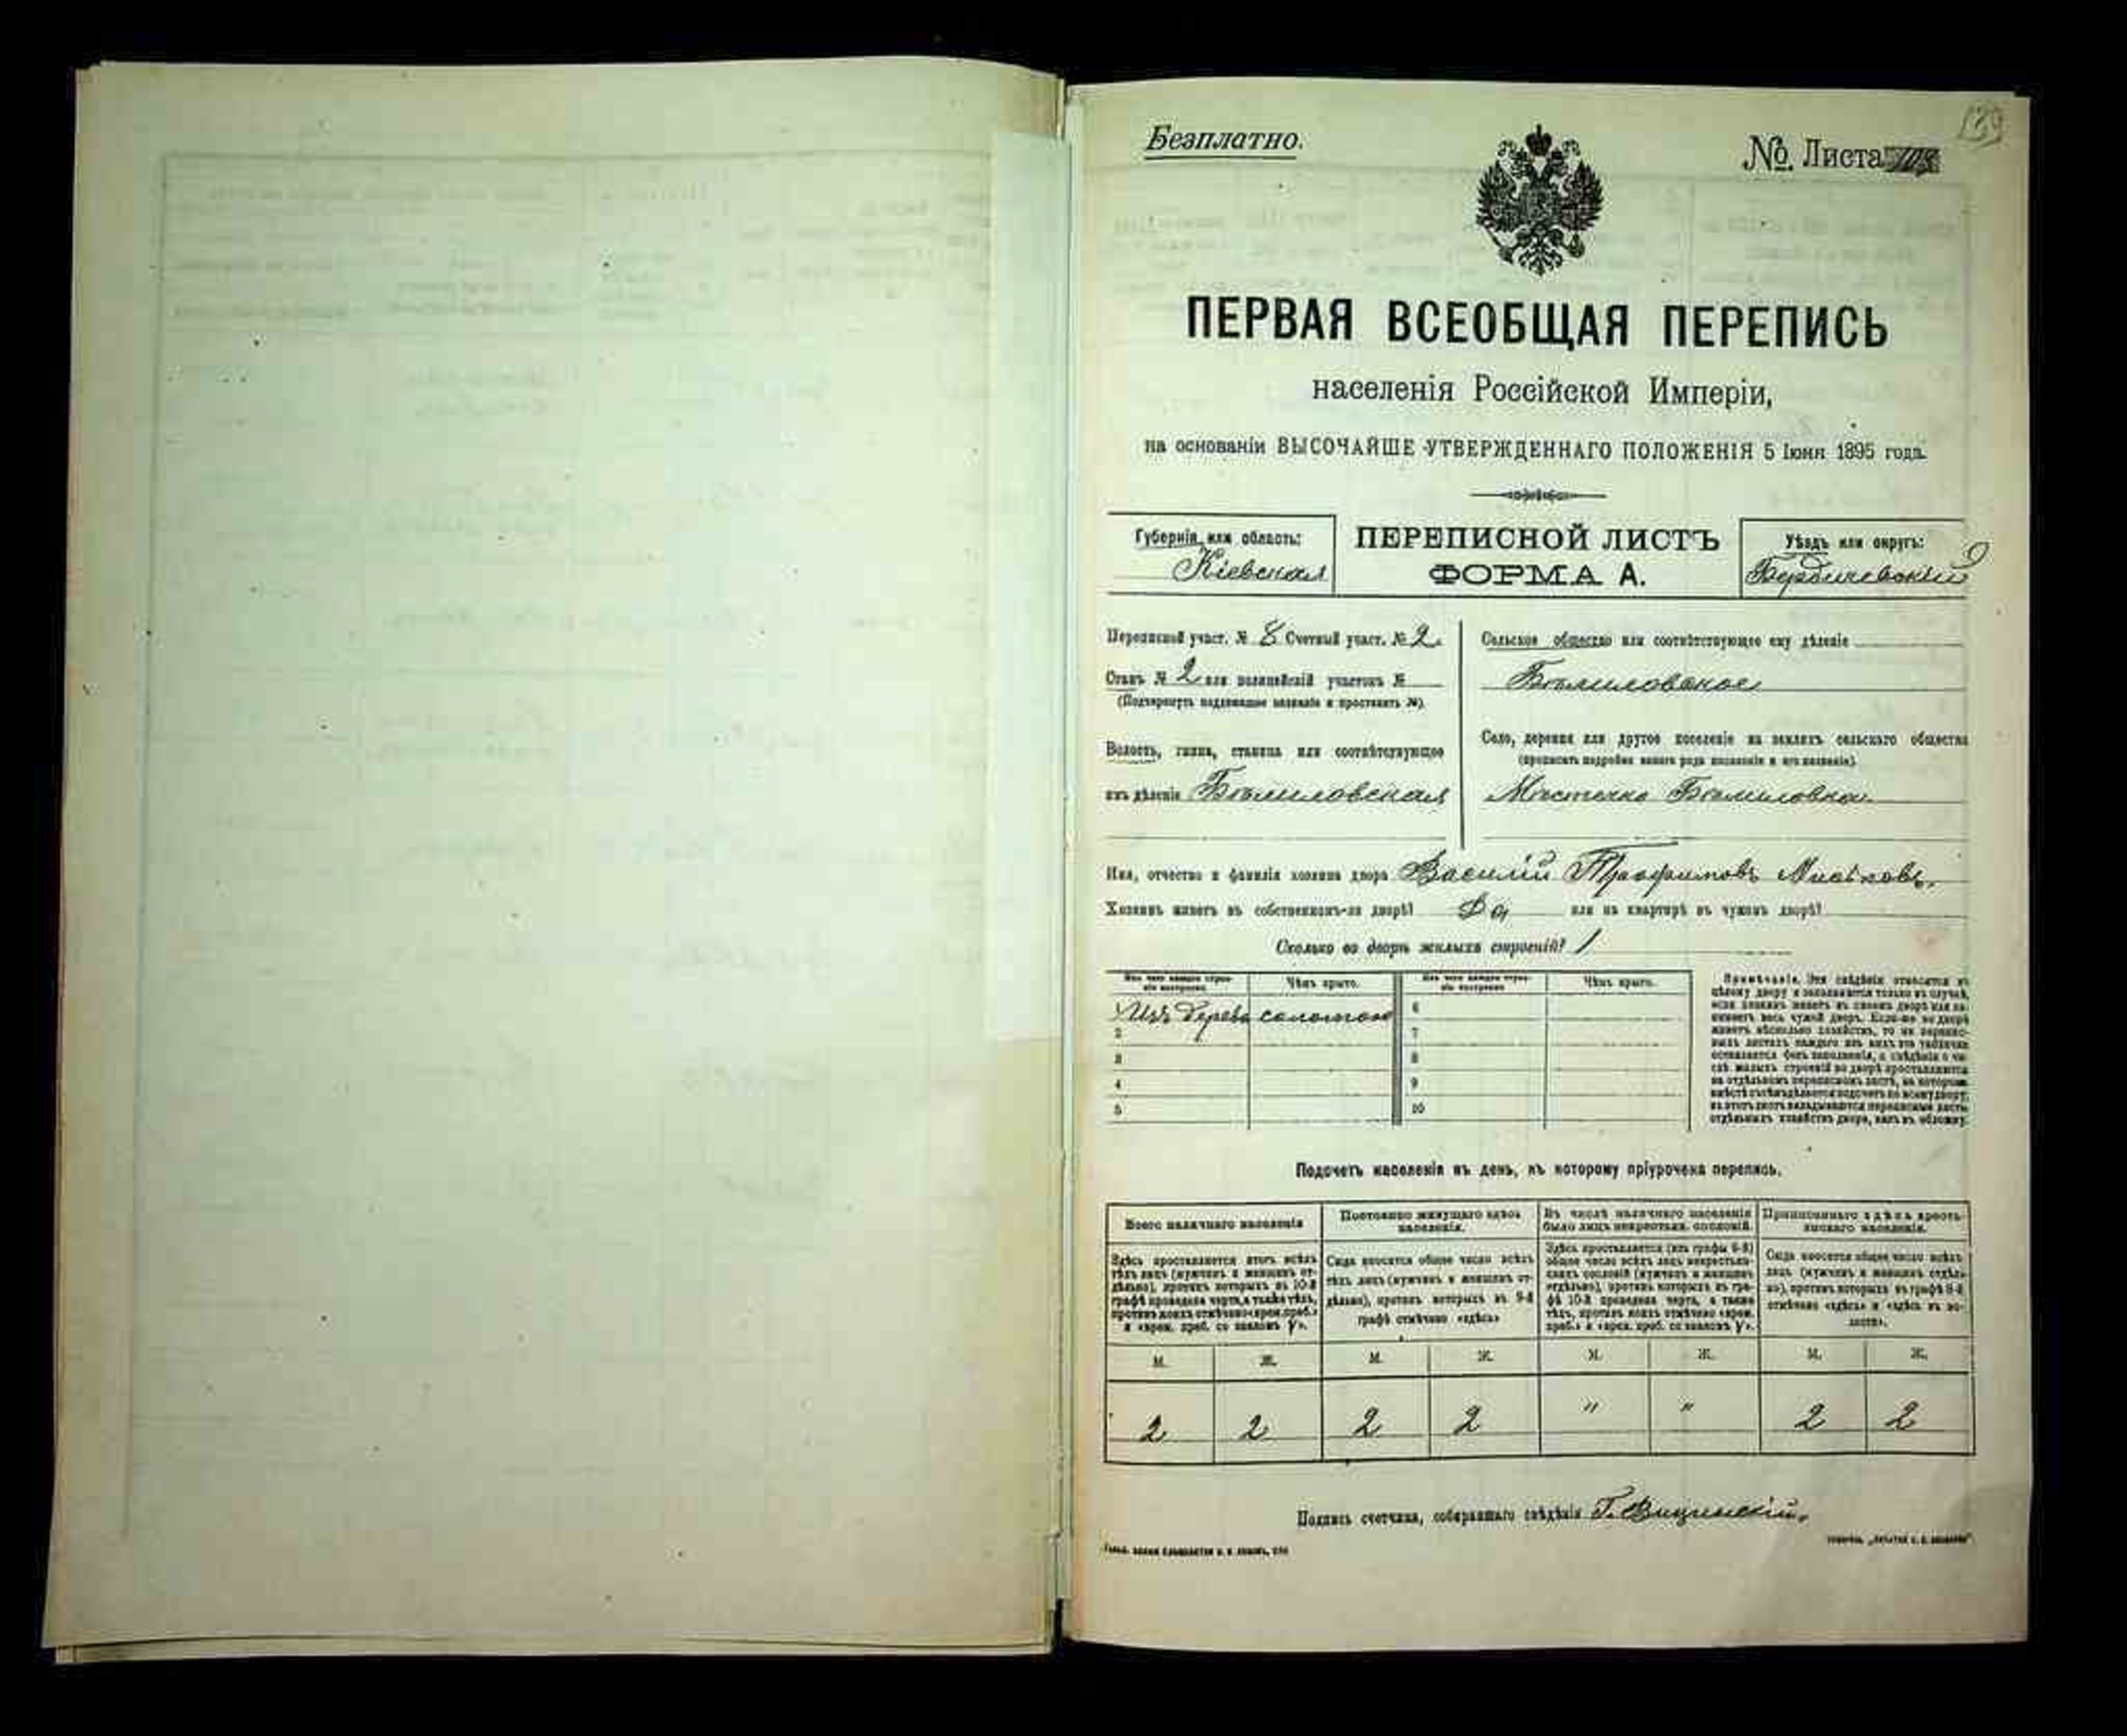 189
Безплатно.
№ Листа
ПЕРВАЯ ВСЕОБЩАЯ ПЕРЕПИСЬ
населенія Россійской Имперіи,
на основаніи ВЫСОЧАЙШЕ УТВЕРЖДЕННАГО ПОЛОЖЕНІЯ 5 Іюня 1895 года.
Губернія или область:
Кіевская
ПЕРЕПИСНОЙ ЛИСТЪ
ФОРМА А.
Уѣздъ или округъ:
Бердичевскій
Переписной участ. № 8 Счетный участ. № 2.
Станъ № 2 или полицейскій участокъ №
(Подчеркнуть надлежащее названіе и проставить №).
Волость, гмина, станица или соотвѣтствующее
имъ дѣленіе Бѣлиловская
Сельское общество или соотвѣтствующее ему дѣленіе
Бѣлиловское
Село, деревня или другое поселеніе на земляхъ сельскаго общества
(прописать подробно какого рода поселеніе и его названіе).
Мѣстечко Бѣлиловка
Имя, отчество и фамилія хозяина двора Василій Трофимовъ
Хозяинъ живетъ въ собственномъ-ли дворѣ? Да или на квартирѣ въ чужомъ дворѣ?
Сколько во дворѣ жилыхъ строеній? 1
Изъ чего каждое строеніе построено. Чѣмъ крыто. Изъ чего каждое строеніе построено. Чѣмъ крыто.
1 Изъ дерева соломою 6
2 7
3 8
4 9
5 10
Примѣчаніе. Эти свѣдѣнія относятся къ
цѣлому двору и заполняются только въ случаѣ,
если хозяинъ живетъ въ своемъ дворѣ или занимаетъ весь чужой дворъ. Если-же во дворѣ
живетъ нѣсколько хозяйствъ, то на переписныхъ листахъ каждаго изъ нихъ эта табличка
оставляется безъ заполненія, а свѣдѣнія о числѣ жилыхъ строеній во дворѣ проставляются
на отдѣльномъ переписномъ листѣ, на которомъ
вмѣстѣ съ тѣмъ дѣлается подсчетъ по всему двору;
въ этотъ листъ вкладываются переписные листы
отдѣльныхъ хозяйствъ двора, какъ въ обложку.
Подсчетъ населенія въ день, къ которому пріурочена перепись.
Всего наличнаго населенія
Здѣсь проставляется итогъ всѣхъ
тѣхъ лицъ (мужчинъ и женщинъ отдѣльно), противъ которыхъ въ 10-й
графѣ проведена черта, а также тѣхъ,
противъ коихъ отмѣчено «врем. преб.»
и «врем. преб. со знакомъ У».
Постоянно живущаго здѣсь населенія.
Сюда вносится общее число всѣхъ
тѣхъ лицъ (мужчинъ и женщинъ отдѣльно), противъ которыхъ въ 9-й
графѣ отмѣчено «здѣсь»
Въ числѣ наличнаго населенія
было лицъ некрестьян. сословій.
Здѣсь проставляется (изъ графы 6-й)
общее число всѣхъ лицъ некрестьянскихъ сословій (мужчинъ и женщинъ
отдѣльно), противъ которыхъ въ графѣ 10-й проведена черта, а также
тѣхъ, противъ коихъ отмѣчено «врем.
преб.» и «врем. преб. со знакомъ У».
Приписаннаго здѣсь крестьянскаго населенія.
Сюда вносится общее число всѣхъ
лицъ (мужчинъ и женщинъ отдѣльно), противъ которыхъ въ графѣ 8-й
отмѣчено «здѣсь» и «здѣсь въ волости».
М. Ж. М. Ж. М. Ж. М. Ж.
2 2 2 2 " " 2 2
Подпись счетчика, собиравшаго свѣдѣнія